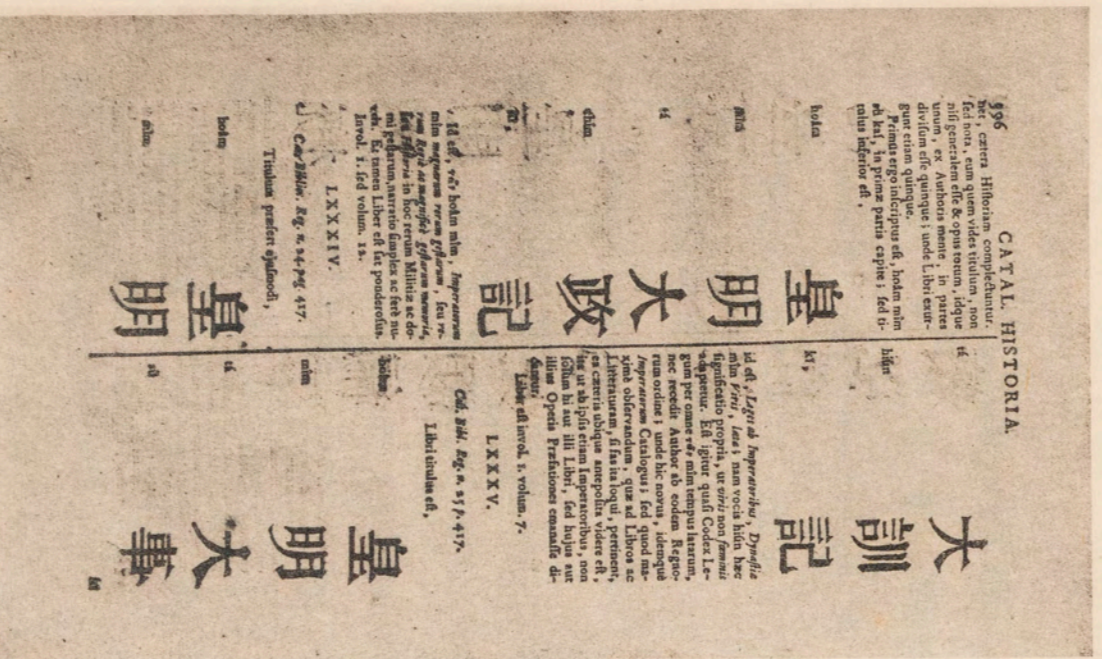 396 CATAL. HISTORIA.
net, cætera Historiam complectuntur.
sed nota, eum quem vides titulum, non
nisi generalem esse & opus totum, idque
unum, ex Authoris mente, in partes
divisum esse quinque; unde Libri exur-
gunt etiam quinque.
Primus ergo inscriptus est, hoâm mîm
kaí, in primæ partis capite; sed ti-
tulus inferior est,
hoâm 皇
mîm 明
tá 大
chím 政
kí, 記
Id est, hoâm mîm, Imperatorum
mîm magnarum rerum gestarum, seu re-
rum Recte ac magnificè gestarum memoria,
seu Historia in hoc rerum Militiæ ac do-
mi gestarum, narratio simplex ac ferè nu-
da. Et tamen Liber est sat ponderosus.
Invol. 1. sed volum. 12.
LXXXIV.
Cod. Biblior. Reg. n. 24. pag. 417.
Titulum præfert ejusmodi,
hoâm 皇
mîm 明
tá 大
hiún 訓
kí, 記
id est, Leges ab Imperatoribus, Dynastiæ
mîm Viris, latæ; nam vocis hiún hæc
significatio propria, ut viris non fœminis
adaptetur. Est igitur quasi Codex Le-
gum per omne mîm tempus latarum,
nec recedit Author ab eodem Regno-
rum ordine; unde hic novus, idemque
Imperatorum Catalogus; sed quod ma-
ximè observandum, quæ ad Libros ac
Litteraturam, si fas ita loqui, pertinent,
ea cæteris ubique anteposita videre est,
ita ut ab ipsis etiam Imperatoribus, non
solùm hi aut illi Libri, sed hujus aut
illius Operis Præfationes emanasse di-
cantur.
Liber est invol. 1. volum. 7.
LXXXV.
Cod. Bibl. Reg. n. 25 p. 417.
Libri titulus est,
hoâm 皇
mîm 明
tá 大
sú 事